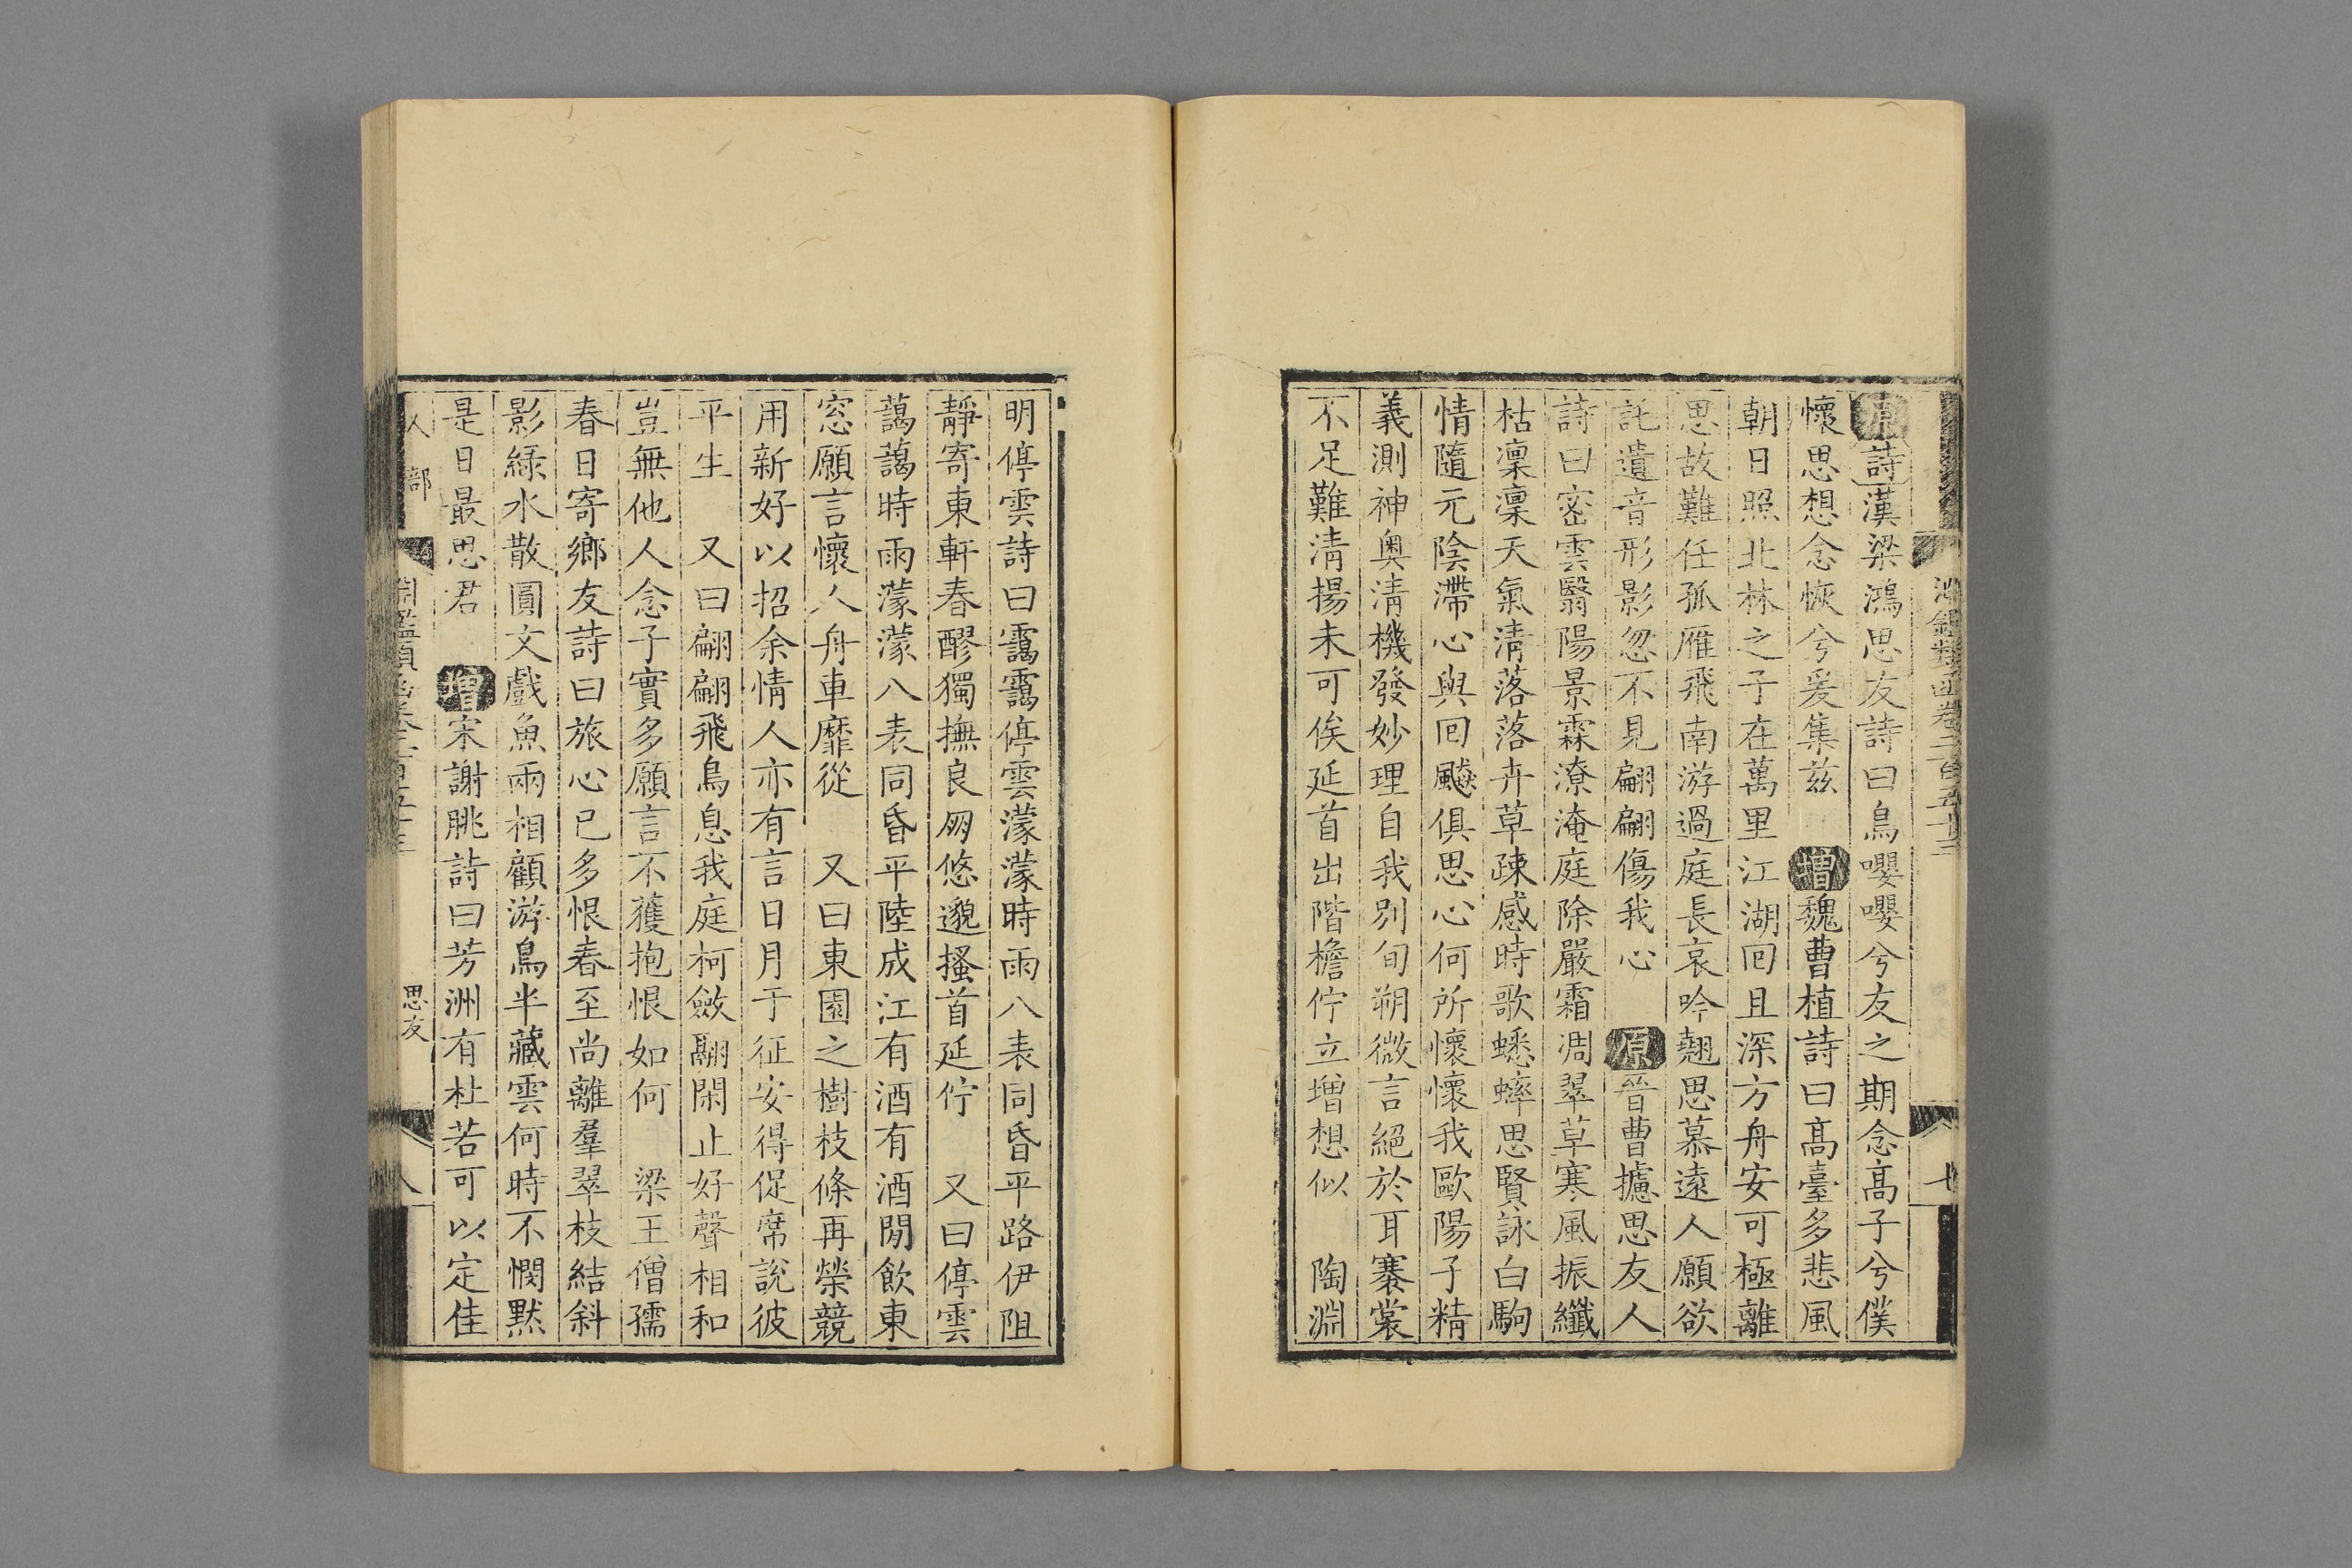 淵鑑類函卷二百五十三
七
原詩漢梁鴻思友詩曰鳥嚶嚶兮友之期念高子兮僕
懷思想念恢兮爰集茲　增魏曹植詩曰高臺多悲風
朝日照北林之子在萬里江湖回且深方舟安可極離
思故難任孤雁飛南游過庭長哀吟翹思慕遠人願欲
託遺音形影忽不見翩翩傷我心　原晉曹攄思友人
詩曰密雲翳陽景霖潦淹庭除嚴霜凋翠草寒風振纖
枯凜凜天氣清落落卉草疎感時歌蟋蟀思賢詠白駒
情隨元陰滯心與回飈俱思心何所懷懷我歐陽子精
義測神奧清機發妙理自我別旬朔微言絕於耳褰裳
不足難清揚未可俟延首出階檐佇立增想似　陶淵
明停雲詩曰靄靄停雲濛濛時雨八表同昏平路伊阻
靜寄東軒春醪獨撫良朋悠邈搔首延佇　又曰停雲
藹藹時雨濛濛八表同昏平陸成江有酒有酒閒飲東
窓願言懷人舟車靡從　又曰東園之樹枝條再榮競
用新好以招余情人亦有言日月于征安得促席說彼
平生　又曰翩翩飛鳥息我庭柯斂翮閑止好聲相和
豈無他人念子實多願言不獲抱恨如何　梁王僧孺
春日寄鄉友詩曰旅心已多恨春至尚離羣翠枝結斜
影綠水散圓文戲魚兩相顧游鳥半藏雲何時不憫默
是日最思君　增宋謝朓詩曰芳洲有杜若可以定佳
人部
淵鑑類函卷二百五十三
思友
八